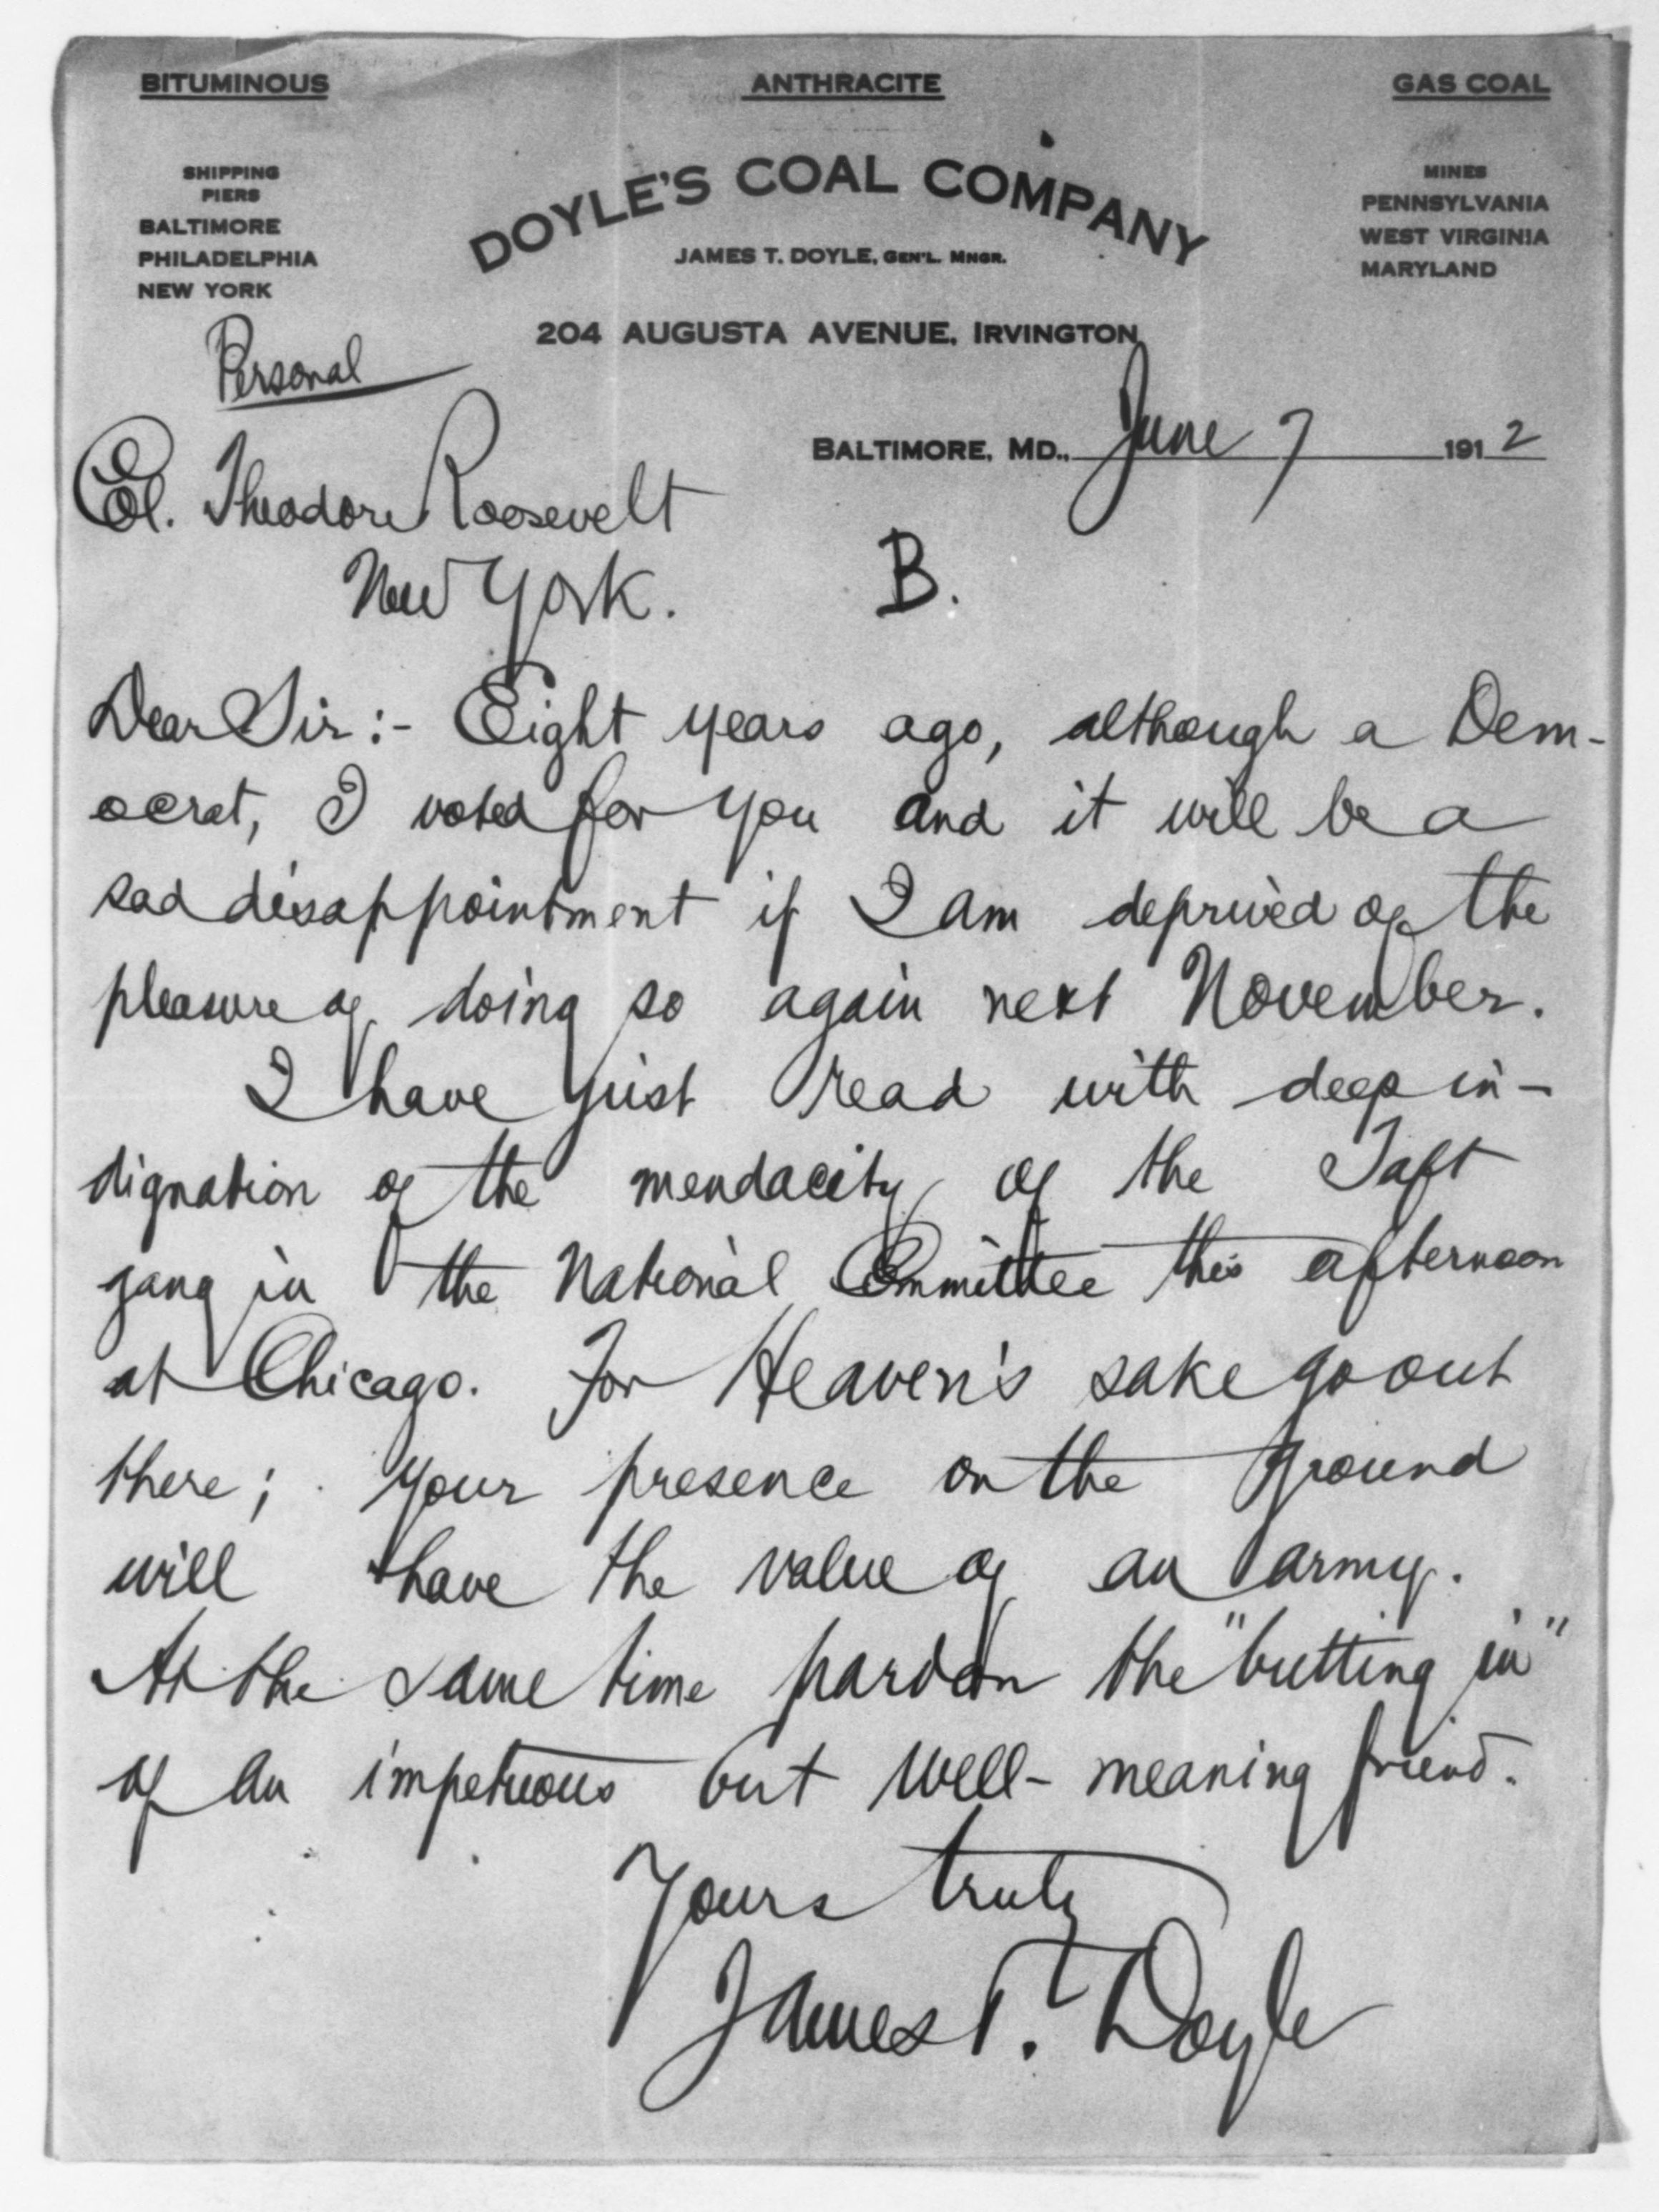 BITUMINOUS ANTHRACITE GAS COAL
SHIPPING
PIERS
BALTIMORE
PHILADELPHIA
NEW YORK
DOYLE'S COAL COMPANY
JAMES T. DOYLE, GEN'L. MNGR.
204 AUGUSTA AVENUE, IRVINGTON
MINES
PENNSYLVANIA
WEST VIRGINIA
MARYLAND
Personal
BALTIMORE, MD., June 7 1912
Col. Theodore Roosevelt
New York.
B.
Dear Sir:- Eight years ago, although a Dem-
ocrat, I voted for you and it will be a
sad disappointment if I am deprived of the
pleasure of doing so again next November.
I have just read with deep in-
dignation of the mendacity of the Taft
gang in the National Committee this afternoon
at Chicago. For Heaven's sake go out
there; your presence on the ground
will have the value of an army.
At the same time pardon the "butting in"
of an impetuous but well-meaning friend.
Yours truly
James T. Doyle